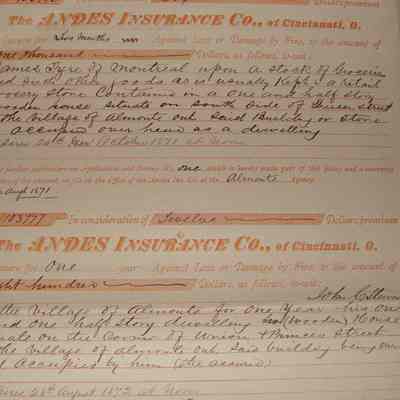 Dollars premium
The ANDES INSURANCE CO., of Cincinnati, O.
insure for two months Against Loss or Damage by Fire, to the amount of
one thousand Dollars, as follows, to-wit:
James Tyre of Montreal upon a Stock of Groceries
and such other goods as is usually Kept in a retail
Grocery Store Contained in a One and half Story
wooden house situate on South Side of Queen Street
the Village of Almonte Ont Said Building or Store
accupied over head as a dwelling
October 1871 at Noon
one
Almonte Agency
Augt 1871
103777 In consideration of Twelve Dollars premium
The ANDES INSURANCE CO., of Cincinnati, O.
insure for One year Against Loss or Damage by Fire, to the amount of
Eight hundred Dollars, as follows, to-wit:
John C
the Village of Almonte for One Year his One
and One half Story dwelling Wooden House
on the Corner of Union & Princes Street
the Village of Almonte Ont Said building being
accupied by him (the assured)
August 1872 at Noon